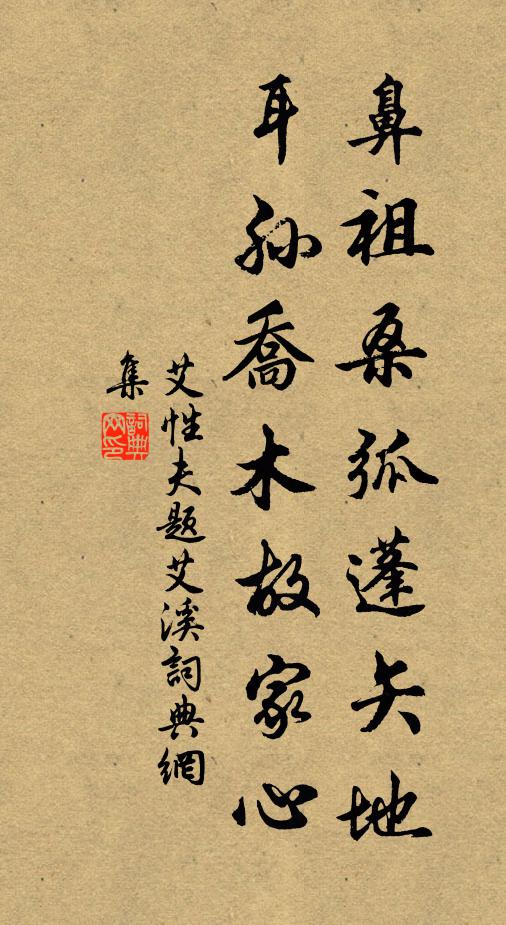 鼻祖桑弧蓬矢地
耳孙喬木故家心
艾性夫题艾溪詞典網
集
詞典网印